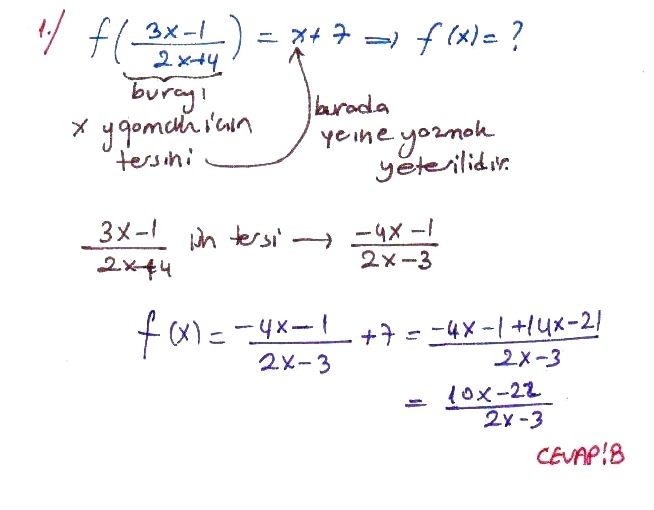 1-/ f( (3x-1)/(2x+4) ) = x+7 ⇒ f(x)= ?
burayı
x yapmak için
tersini
burada
yerine yazmak
yeterilidir.
(3x-1)/(2x+4) in tersi → (-4x-1)/(2x-3)
f(x) = (-4x-1)/(2x-3) +7 = (-4x-1+14x-21)/(2x-3)
= (10x-22)/(2x-3)
CEVAP:B